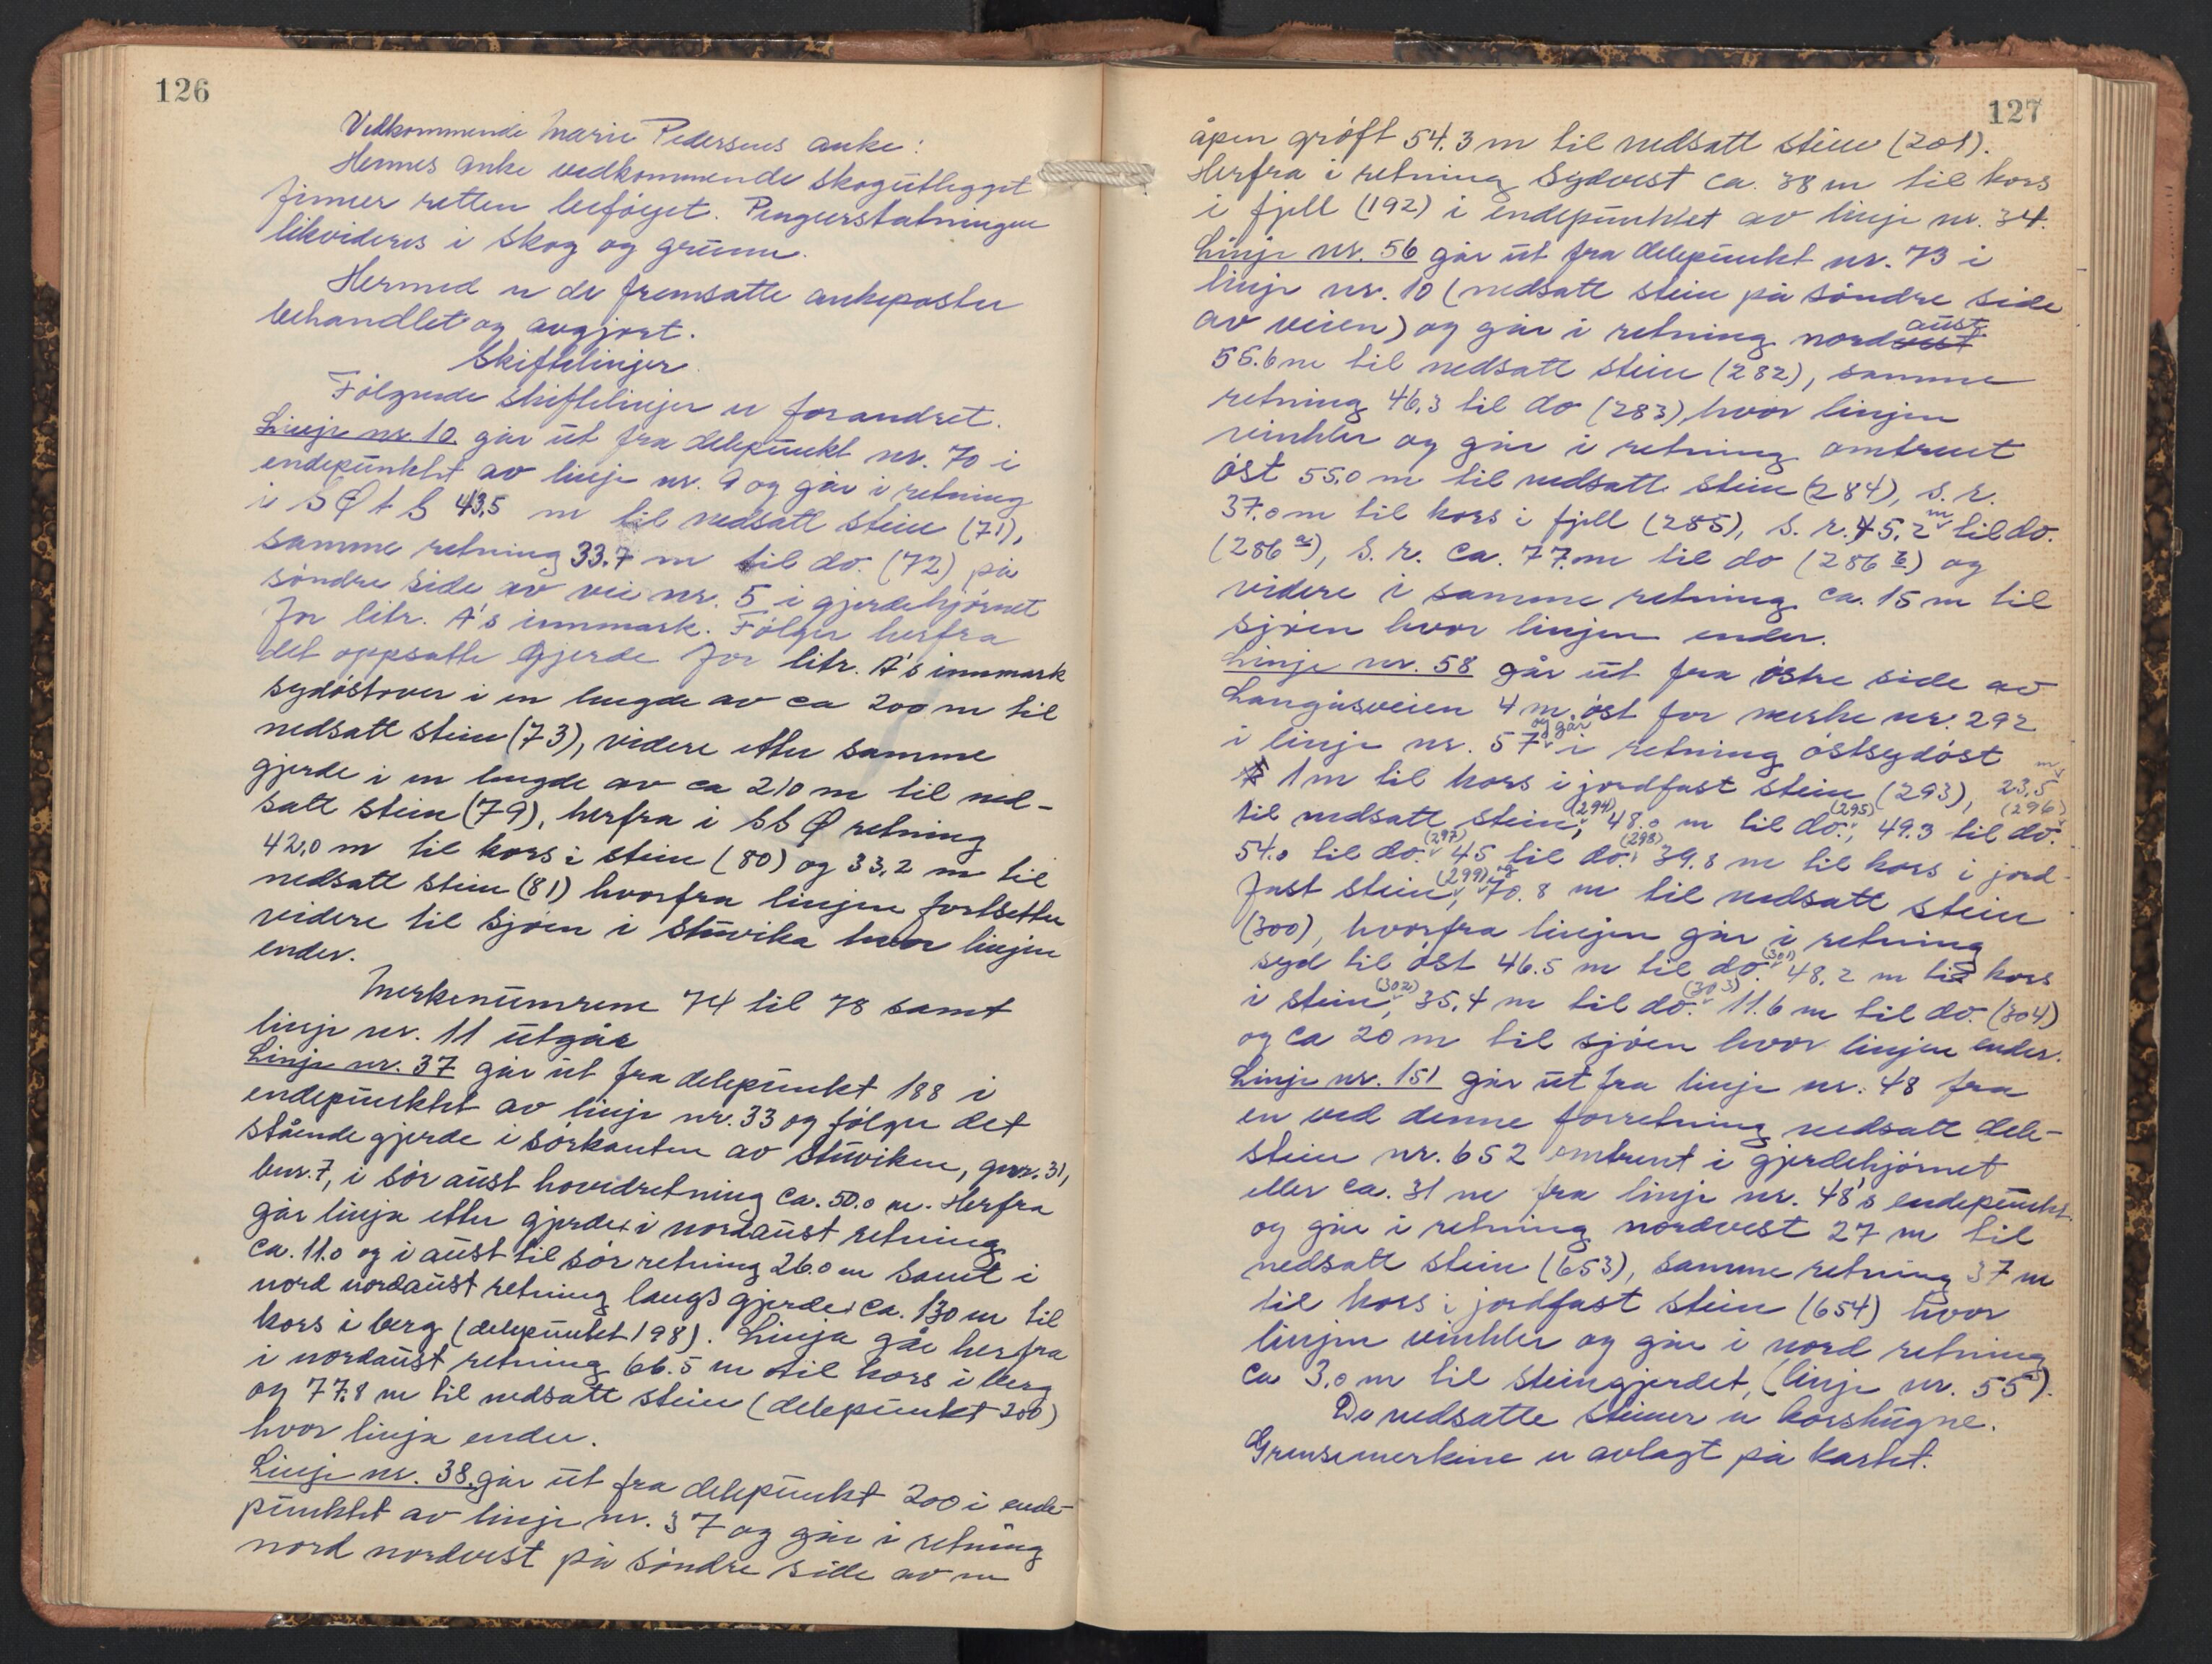 126
Vedkommende Marie Pedersens anke:
Hennes anke vedkommende skogutlegget
finner retten beføiet. Pengeerstatningen
likvideres i skog og grunn.
Hermed er de fremsatte ankeposter
behandlet og avgjort.
Skiftelinjer
Følgende skiftelinjer er forandret.
Linje nr. 10 går ut fra delepunkt nr. 70 i
endepunktet av linje nr. 9 og går i retning
i S Ø t S 43,5 m til nedsatt stein (71),
samme retning 33.7 m til do. (72) på
søndre side av vei nr. 5 i gjerdehjørnet
for litr. A's innmark. Følger herfra
det oppsatte gjerde for litr. A's innmark
sydøstover i en lengde av ca 200 m til
nedsatt stein (73), videre etter samme
gjerde i en lengde av ca 210 m til ned-
satt stein (79), herfra i S S Ø retning
42,0 m til kors i stein (80) og 33,2 m til
nedsatt stein (81) hvorfra linjen fortsetter
videre til sjøen i Stuvika hvor linjen
ender.
Merkenumrene 74 til 78 samt
linje nr. 11 utgår
Linje nr. 37 går ut fra delepunkt 188 i
endepunktet av linje nr. 33 og følger det
stående gjerde i sørkanten av Stuviken, gnr. 31,
bnr. 7, i sør aust hovedretning ca. 50.0 m. Herfra
går linja etter gjerdet i nordaust retning
ca. 11.0 og i aust til sør retning 26.0 m samt i
nord nordaust retning langs gjerdet ca. 130 m til
kors i berg (delepunktet 198). Linja går herfra
i nordaust retning 66.5 m til kors i berg
og 77.8 m til nedsatt stein (delepunkt 200)
hvor linja ender.
Linje nr. 38. går ut fra delepunkt 200 i ende-
punktet av linje nr. 37 og går i retning
nord nordvest på søndre side av en
127
åpen grøft 54.3 m til nedsatt stein (201).
Herfra i retning Sydvest ca. 38 m til kors
i fjell (192) i endepunktet av linje nr. 34.
Linje nr. 56 går ut fra delepunkt nr. 73 i
linje nr. 10 (nedsatt stein på søndre side
av veien) og går i retning nordvest aust
56.6 m til nedsatt stein (282), samme
retning 46,3 til do (283) hvor linjen
vinkler og går i retning omtrent
øst 55.0 m til nedsatt stein (284), s. r.
37.0 m til kors i fjell (285), s. r. 45,2 m til do.
(286 a), s. r. ca. 77. m til do (286 b) og
videre i samme retning ca. 15 m til
sjøen hvor linjen ender.
Linje nr. 58 går ut fra østre side av
Langåsveien 4 m. øst for merke nr. 292
i linje nr. 57 og går i retning østsydøst
1 m til kors i jordfast stein (293), 23,5 m
til nedsatt stein (294), 48.0 m til do. (295), 49.3 til do. (296)
54.0 til do. (297) 45 til do. (298) 39.8 m til kors i jord-
fast stein (299), og 70.8 m til nedsatt stein
(300), hvorfra linjen går i retning
syd til øst 46.5 m til do. (301) 48,2 m til kors
i stein (302), 35,4 m til do. (303) 11.6 m til do. (304)
og ca 20 m til sjøen hvor linjen ender.
Linje nr. 151 går ut fra linje nr. 48 fra
en ved denne forretning nedsatt dele-
stein nr. 652 omtrent i gjerdehjørnet
eller ca. 31 m fra linje nr. 48's endepunkt
og går i retning nordvest 27 m til
nedsatt stein (653), samme retning 37 m
til kors i jordfast stein (654) hvor
linjen vinkler og går i nord retning
ca 3.0 m til steingjerdet, (linje nr. 55).
De nedsatte steiner er korshugne.
Grensemerkene er avlagt på kartet.